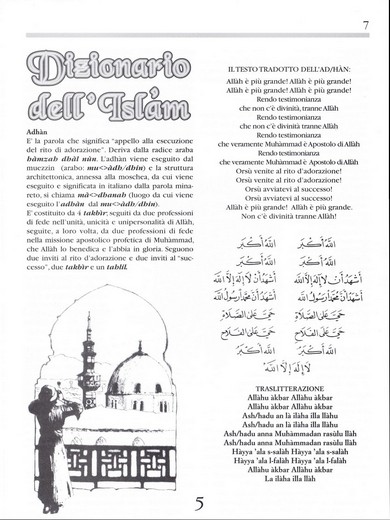 7
Dizionario
dell'Islàm
Adhàn
E' la parola che significa "appello alla esecuzione
del rito di adorazione". Deriva dalla radice araba
hàmzah dhàl nùn. L'adhàn viene eseguito dal
muezzin (arabo: mu<>àdh/dhin) e la struttura
architettonica, annessa alla moschea, da cui viene
eseguito e significata in italiano dalla parola mina-
reto, si chiama mà<>dhanah (luogo da cui viene
eseguito l'adhàn dal mu<>àdh/dhin).
E' costituito da 4 takbìr; seguiti da due professioni
di fede nell'unità, unicità e unipersonalità di Allàh,
seguite, a loro volta, da due professioni di fede
nella missione apostolico profetica di Muhàmmad,
che Allàh lo benedica e l'abbia in gloria. Seguono
due inviti al rito d'adorazione e due inviti al "suc-
cesso", due takbìr e un tahlìl.
IL TESTO TRADOTTO DELL'AD/HÀN:
Allàh è più grande! Allàh è più grande!
Allàh è più grande! Allàh è più grande!
Rendo testimonianza
che non c'è divinità, tranne Allàh
Rendo testimonianza
che non c'è divinità tranne Allàh
Rendo testimonianza
che veramente Muhàmmad è Apostolo di Allàh
Rendo testimonianza
che veramente Muhàmmad è Apostolo di Allàh
Orsù venite al rito d'adorazione!
Orsù venite al rito d'adorazione!
Orsù avviatevi al successo!
Orsù avviatevi al successo!
Allàh è più grande! Allàh è più grande.
Non c'è divinità tranne Allàh!
الله أكبر الله أكبر
الله أكبر الله أكبر
أشهد أن لا إله إلا الله أشهد أن لا إله إلا الله
أشهد أن محمدا رسول الله أشهد أن محمدا رسول الله
حي على الصلاة حي على الصلاة
حي على الفلاح حي على الفلاح
الله أكبر الله أكبر
لا إله إلا الله
TRASLITTERAZIONE
Allàhu àkbar Allàhu àkbar
Allàhu àkbar Allàhu àkbar
Ash/hadu an là ilàha illa llàhu
Ash/hadu an là ilàha illa llàhu
Ash/hadu anna Muhàmmadan rasùlu llàh
Ash/hadu anna Muhàmmadan rasùlu llàh
Hàyya 'ala s-salàh Hàyya 'ala s-salàh
Hàyya 'ala l-falàh Hàyya 'ala l-falàh
Allàhu àkbar Allàhu àkbar
La ilàha illa llàh
5